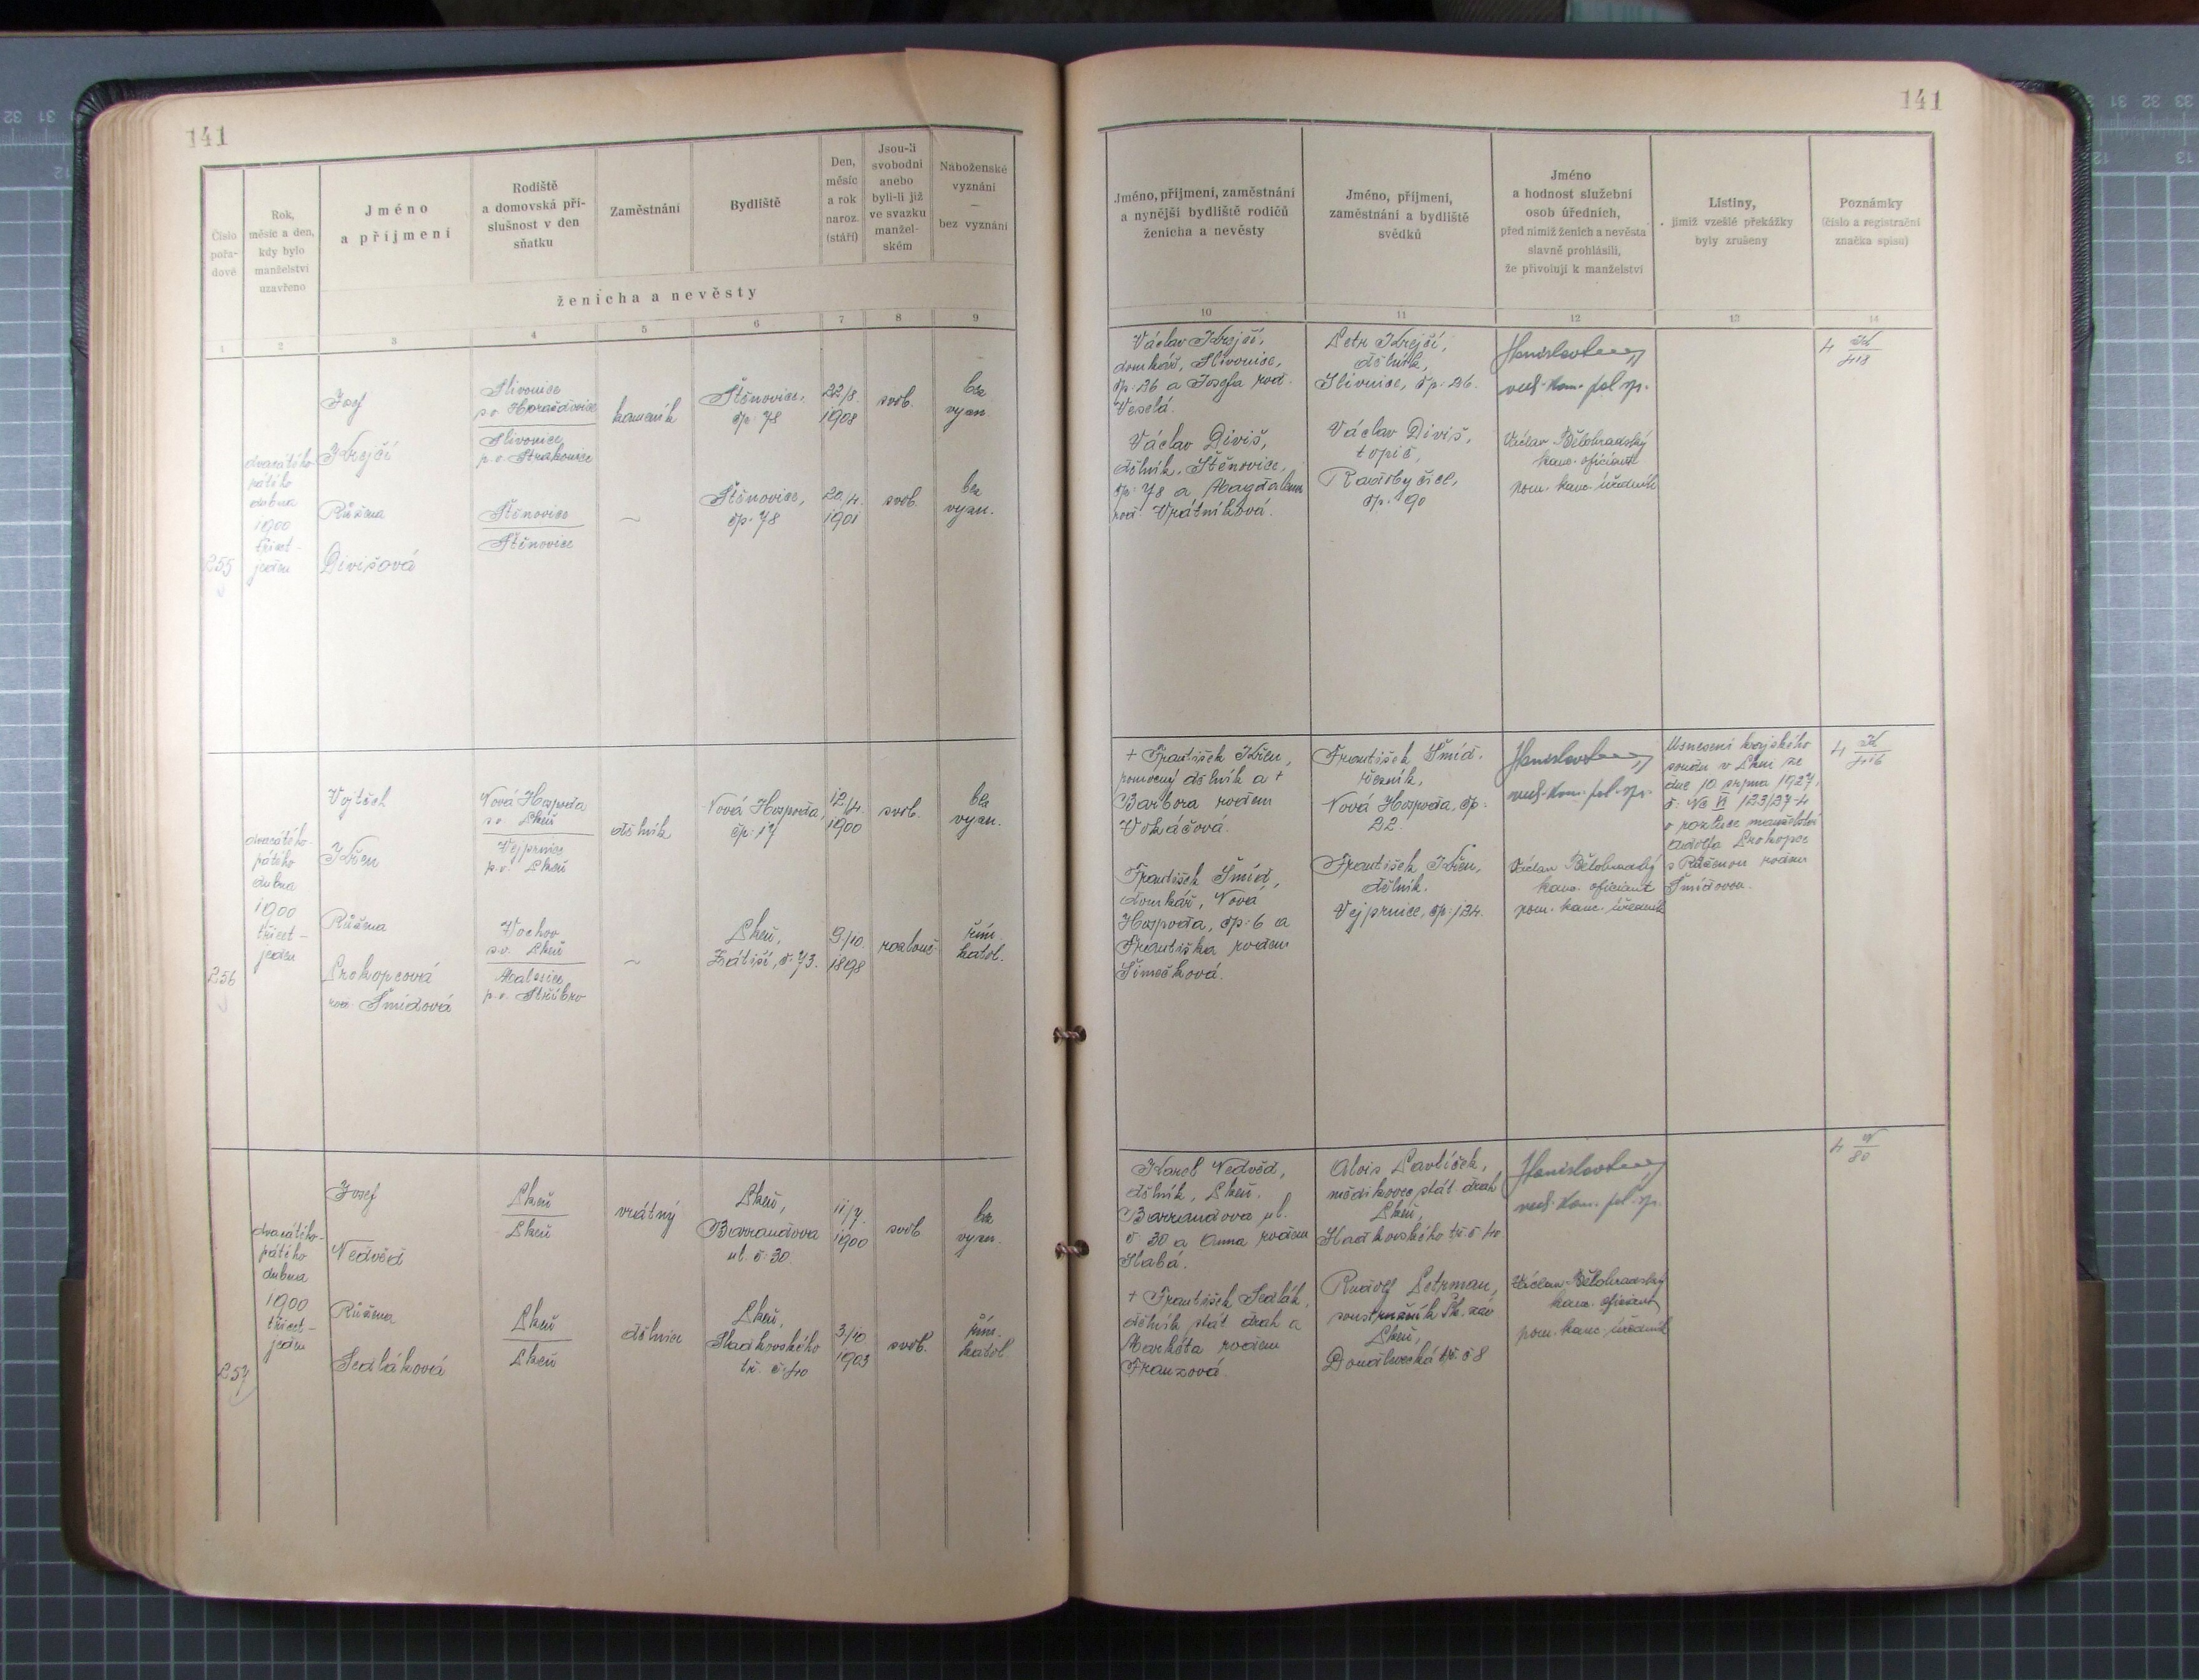 141
141
Číslo
pořa-
dové
Rok,
měsíc a den,
kdy bylo
manželství
uzavřeno
Jméno
a příjmení
Rodiště
a domovská pří-
slušnost v den
sňatku
Zaměstnání
Bydliště
Den,
měsíc
a rok
naroz.
(stáří)
Jsou-li
svobodni
anebo
byli-li již
ve svazku
manžel-
ském
Náboženské
vyznání
—
bez vyznání
ženicha a nevěsty
1 2 3 4 5 6 7 8 9
255
dvacátého-
pátého
dubna
1900
třicet-
jeden
Josef
Krejčí
Slivonice
p.o. Horažďovice
Slivonice,
p.o. Strakonice
kameník
Štěnovice,
čp. 78
22/8.
1908
svob.
bez
vyzn.
Růžena
Divišová
Štěnovice
Štěnovice
~
Štěnovice,
čp. 78
20/4.
1901
svob.
bez
vyzn.
256
dvacátého-
pátého
dubna
1900
třicet-
jeden
Vojtěch
Křen
Nová Hospoda
p.o. Plzeň
Vejprnice
p.o. Plzeň
dělník
Nová Hospoda,
čp. 17
12/4.
1900
svob.
bez
vyzn.
Růžena
Prokopcová
roz. Šmídová
Vochov
p.o. Plzeň
Malesice
p.o. Stříbro
~
Plzeň,
Zátiší, č. 73.
9/10.
1898
rozlouč.
řím.
katol.
257
dvacátého-
pátého
dubna
1900
třicet-
jeden
Josef
Nedvěd
Plzeň
Plzeň
vrátný
Plzeň,
Barrandova
ul. č. 30.
11/7.
1900
svob.
bez
vyzn.
Růžena
Sedláková
Plzeň
Plzeň
dělnice
Plzeň,
Sladkovského
tř. č. 40
3/10
1903
svob.
řím.
katol.
Jméno, příjmení, zaměstnání
a nynější bydliště rodičů
ženicha a nevěsty
Jméno, příjmení,
zaměstnání a bydliště
svědků
Jméno
a hodnost služební
osob úředních,
před nimiž ženich a nevěsta
slavně prohlásili,
že přivolují k manželství
Listiny,
jimiž vzešlé překážky
byly zrušeny
Poznámky
(číslo a registrační
značka spisu)
10 11 12 13 14
Václav Krejčí,
domkář, Slivonice,
čp. 26 a Josefa roz.
Veselá.
Václav Diviš,
dělník, Štěnovice,
čp. 78 a Magdalena
roz. Vrátníková.
Petr Krejčí,
dělník,
Slivonice, čp. 26.
Václav Diviš,
topič,
Radobyčice,
čp. 90
Václav Bělohradský
kanc. oficiant
pom. kanc. úředník
4
418
+ František Křen,
pomocný dělník a +
Barbora rozen
Vokáčová.
František Šmíd,
domkář, Nová
Hospoda, čp. 6 a
Františka rozen
Šimečková.
František Šmíd,
řezník,
Nová Hospoda, čp.
22.
František Křen,
dělník.
Vejprnice, čp. 124.
Václav Bělohradský
kanc. oficiant
pom. kanc. úředník
Usnesení krajského
soudu v Plzni ze
dne 10 srpna 1927,
č. Nc VI 123/27-4
o rozluce manželství
Adolfa Prokopce
s Růženou rozen
Šmídovou.
4
Karel Nedvěd,
dělník, Plzeň.
Barrandova ul.
č. 30 a Anna rozen
Slabá.
+ František Sedlák,
dělník stát. drah a
Markéta rozen
Franzová.
Alois Pavlíček,
mědikovec stát. drah
Plzeň,
Sladkovského tř. č. 40.
Rudolf Petrman,
soustružník Šk. záv.
Plzeň,
Doudlevecká tř. č. 8
Václav Bělohradský
kanc. oficiant
pom. kanc. úředník
4 N
80